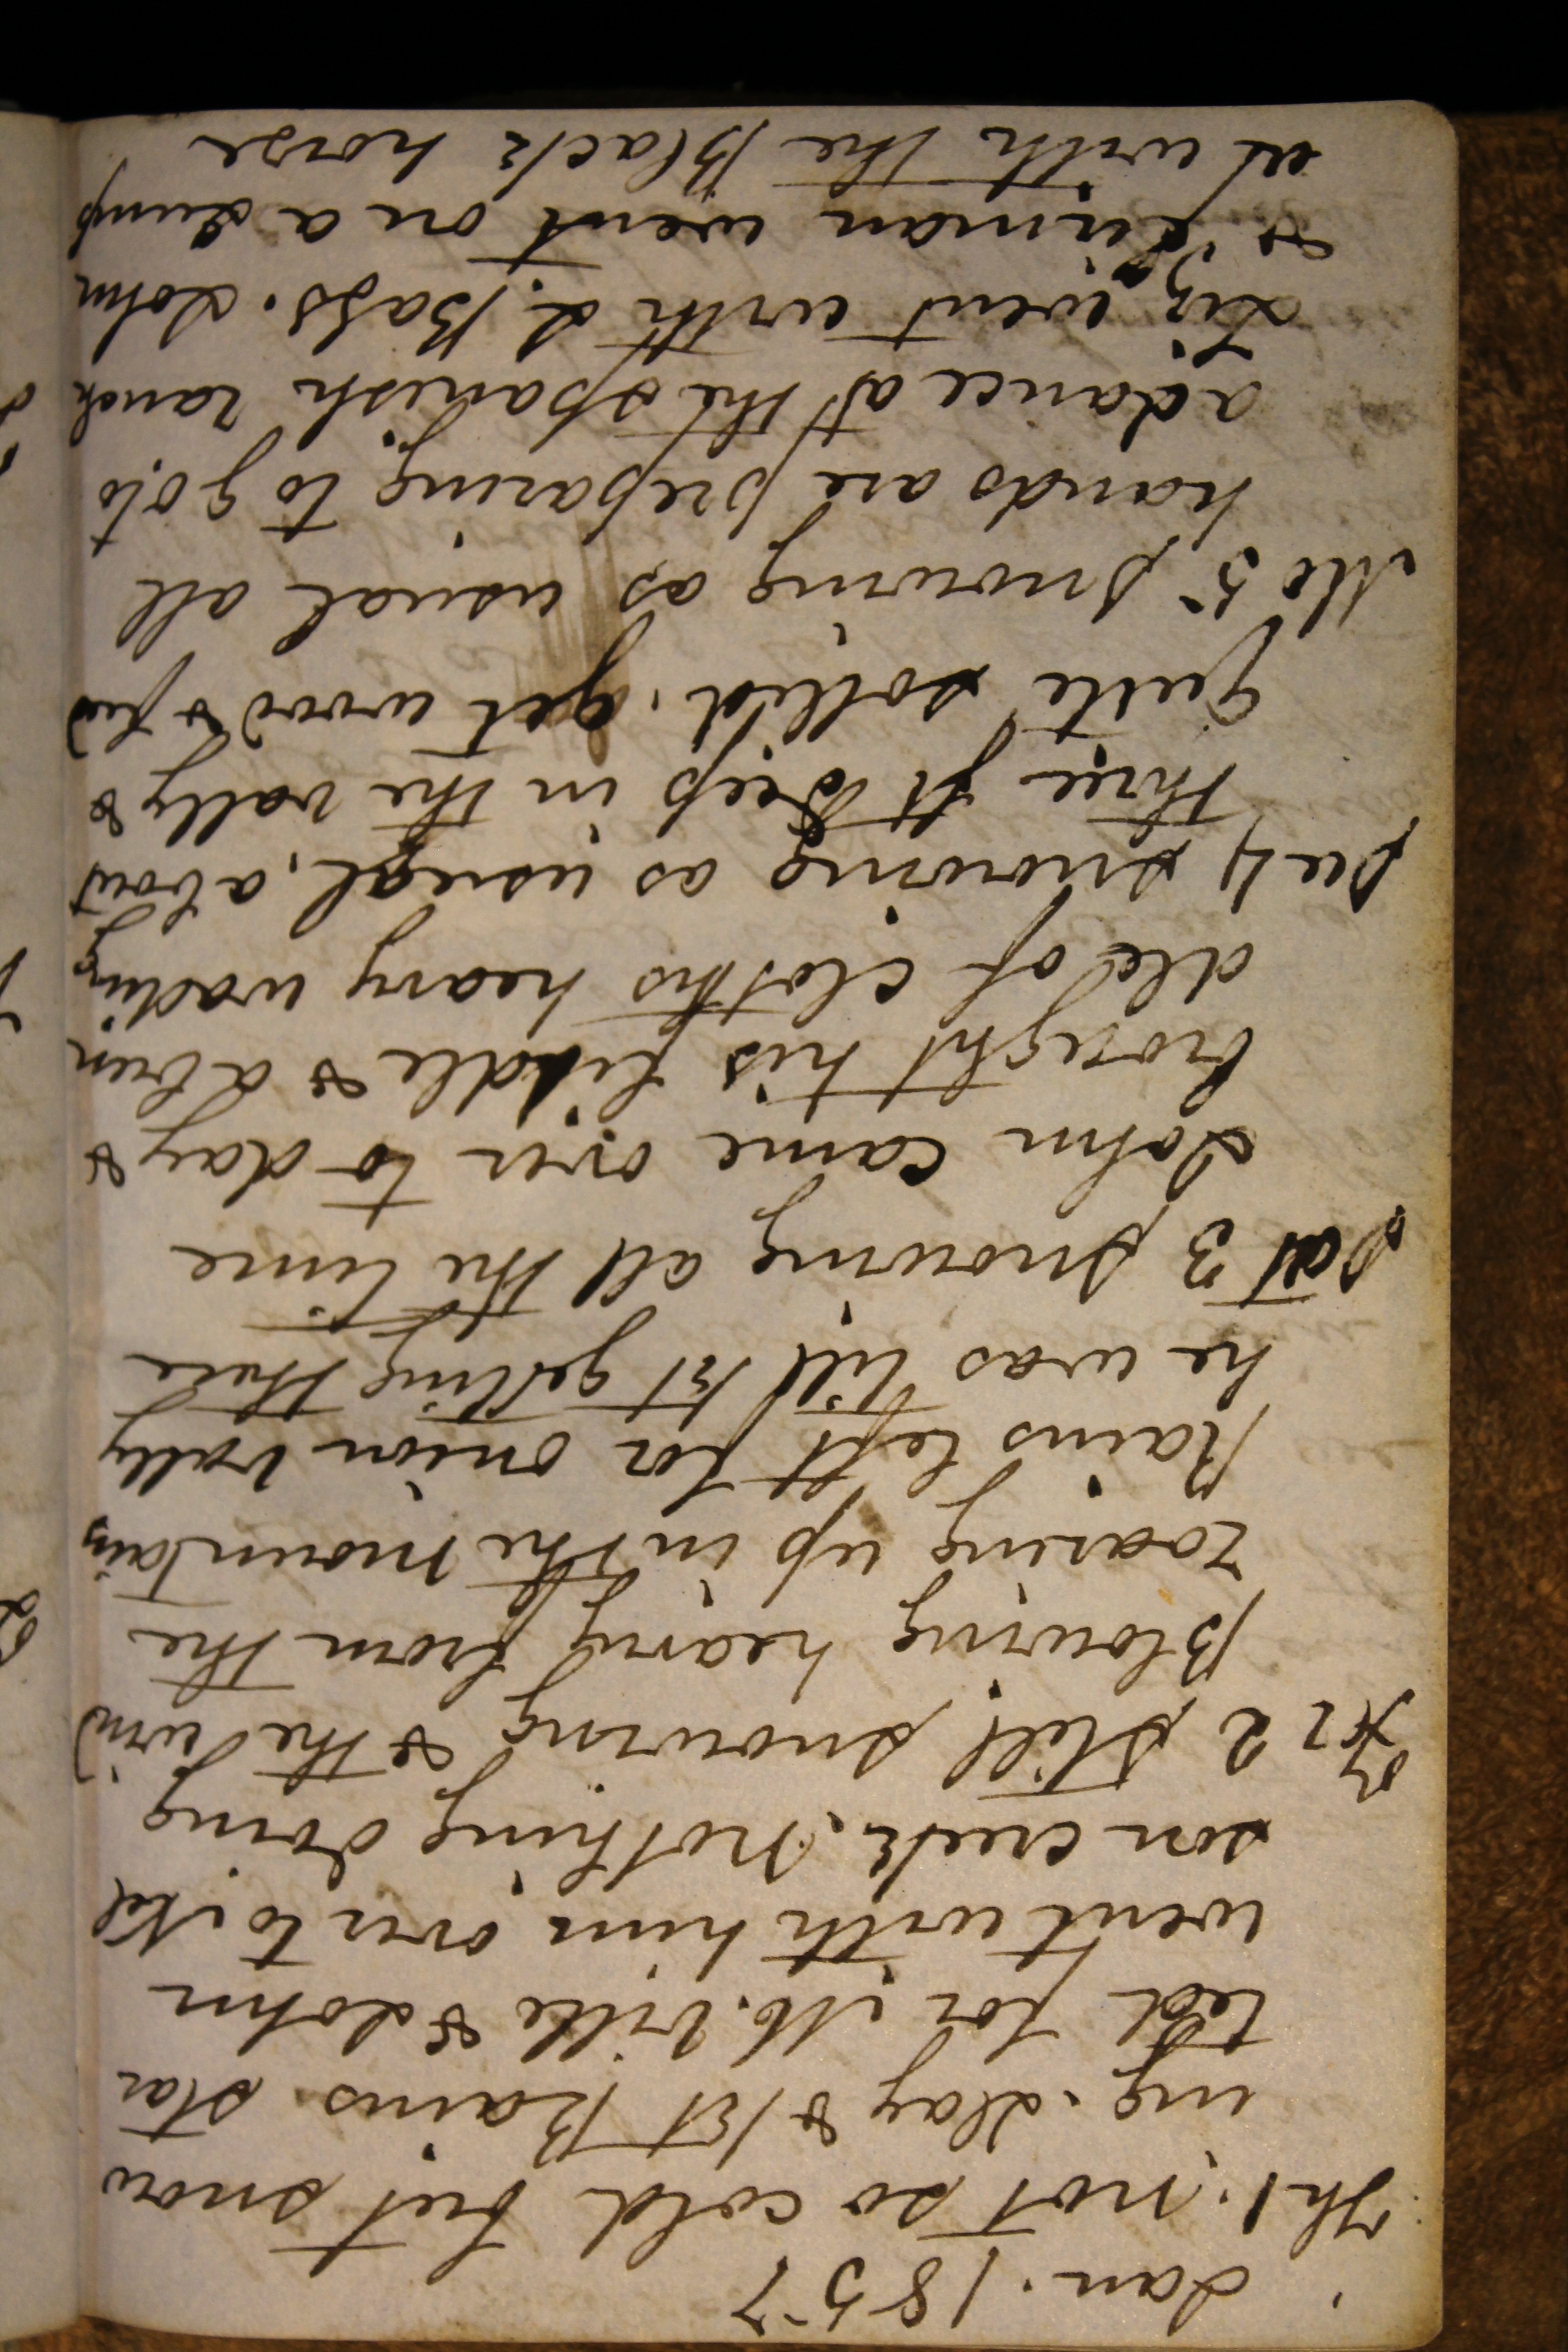 Jan. 1857
Th 1. not so cold but snow
ing. day & 1st Rains star
ted for M. ville & John
went with him over to Nel
son creek. nothing doing
Fr 2 still snowing & the wind
Blowing heavy from the
roaring up in the mountains
Rains left for onion vally
he was till 1st getting there
Sat 3 snowing all the time
John came over to day &
brought his fiddle & a bun
dle of cloths heavy wading
Su 4 snowing as usual, about
three ft deep in the vally &
quite sollid. get wood &
Mo 5 snowing as usual all
hands are preparing to go to
a dance at the spanish ranch
Liz went with L. Bass. John
& went on a Jump
er with the Black horse